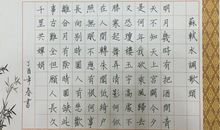 蘇軾水調歌頭
明月幾時有把酒問青
天不知天上宮闕今夕
是何年我欲乘風歸去
又恐瓊樓玉宇高處不
勝寒起舞弄清影何似
在人間轉朱閣低綺戶
照無眠不應有恨何事
長向別時圓人有悲歡
離合月有陰晴圓缺此
事古難全但願人長久
千里共嬋娟
丁酉年春書